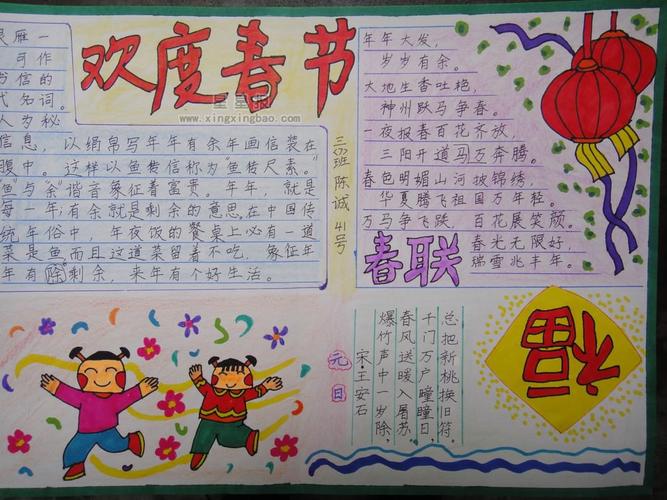 欢度春节
星星报
www.xingxingbao.com
雁一
可作
书信的
代名词。
人为秘
信息，以绢帛写年年有余年画信装在
腹中。这样以鱼传信称为“鱼传尺素。”
鱼”与“余”谐音象征着富贵。年年，就是
每一年；有余就是剩余的意思，在中国传
统年俗中，年夜饭的餐桌上必有一道
菜是鱼而且这道菜留着不吃，象征年
年有除剩余，来年有个好生活。
班 陈诚 41号
年年大发，
岁岁有余。
大地生香吐艳，
神州跃马争春。
一夜报春百花齐放，
三阳开道马万奔腾。
春色明媚山河披锦绣，
华夏腾飞祖国万年轻。
万马争飞跃，百花展笑颜。
春光无限好，
瑞雪兆丰年。
春联
福
元日
宋·王安石
爆竹声中一岁除，
春风送暖入屠苏。
千门万户瞳瞳日，
总把新桃换旧符。